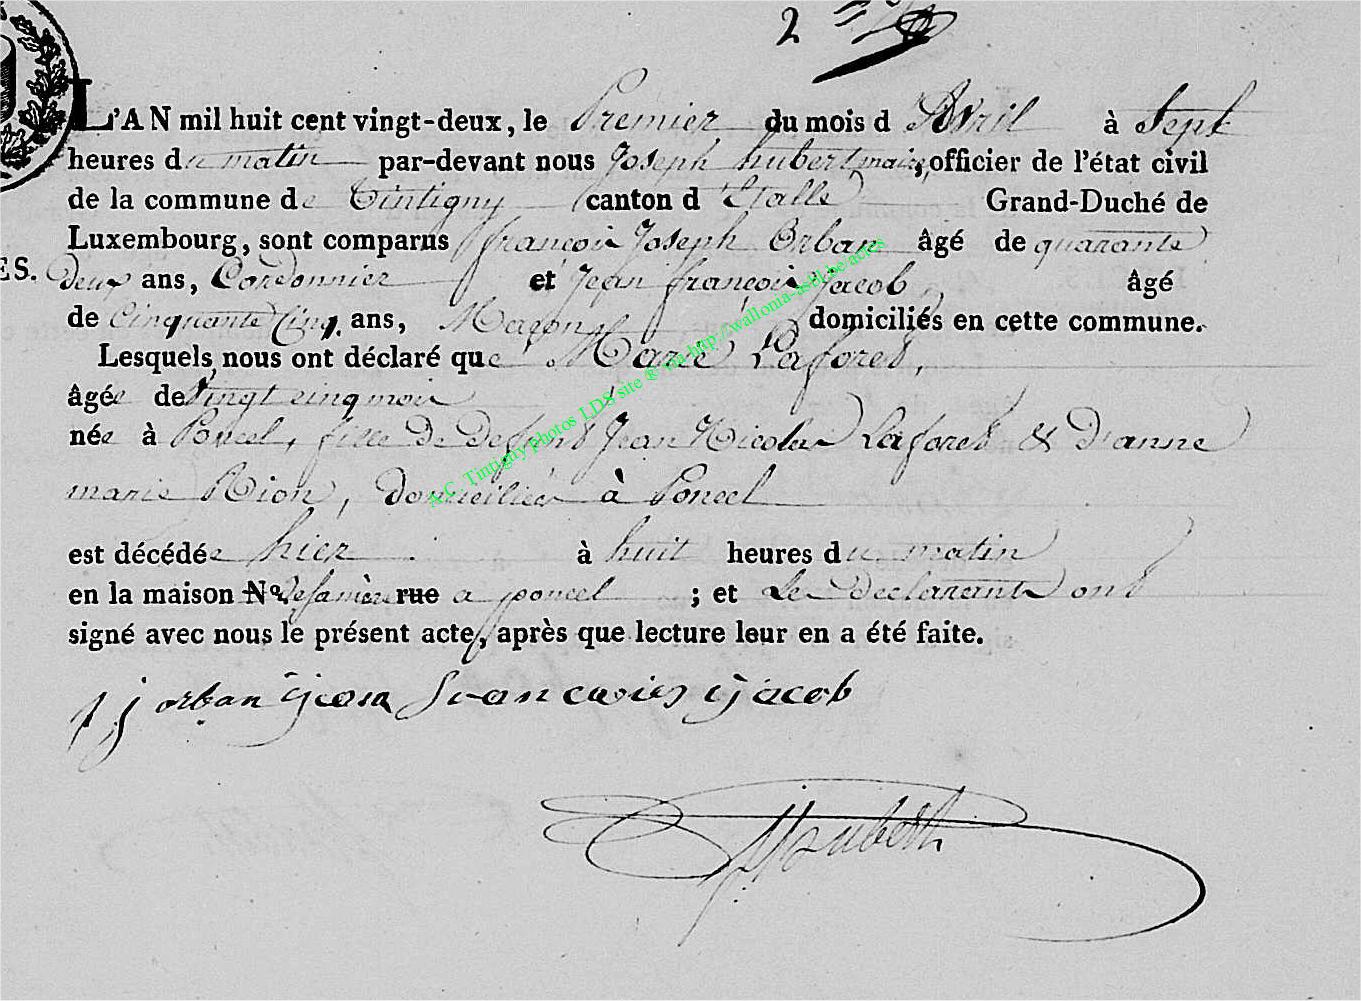 2
L'AN mil huit cent vingt-deux, le Premier du mois d'Avril à Sept
heures du matin par-devant nous Joseph hubert maire, officier de l'état civil
de la commune de Tintigny canton d'Etalle Grand-Duché de
Luxembourg, sont comparus françois Joseph Orban âgé de quarante
ES. Deux ans, Cordonnier et Jean françois Jacob âgé
de Cinquante Cinq ans, Maçon domiciliés en cette commune.
Lesquels nous ont déclaré que Marie Laforet,
âgée de Vingt cinq mois
née à Poncel, fille de defunt Jean Nicolas Laforet & d'anne
marie Rion, domiciliés à Poncel
est décédée hier à huit heures du matin
en la maison No. de sa mère rue a poncel ; et Les declarants ont
signé avec nous le présent acte, après que lecture leur en a été faite.
f j orban jean francois jacob
Hubert
A.C. Tintigny photos LDS site © via http://wallonia-asbl.be/actes